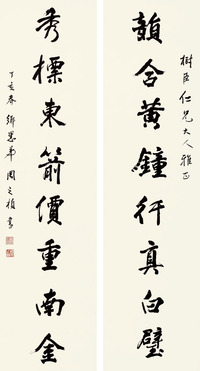 樹臣仁兄大人雅正
韻含黃鐘行真白璧
秀標東箭價重南金
丁亥春鄉愚弟周之楨書